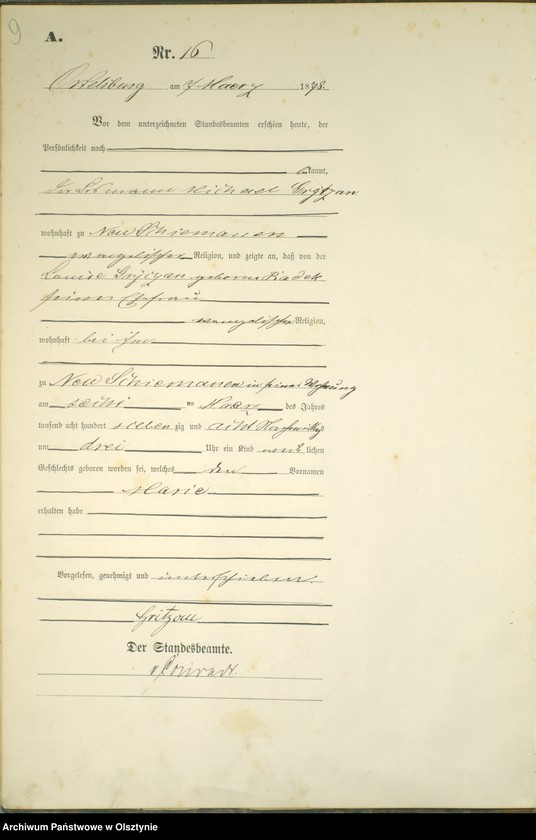 9
A.
Nr. 16
Ortelsburg am 7 Maerz 1878.
Vor dem unterzeichneten Standesbeamten erschien heute, der
Persönlichkeit nach
bekannt,
der Losmann Michael Grytzan
wohnhaft zu Neu Schiemanen
evangelischer Religion, und zeigte an, daß von der
Louise Grytzan geborene Radek
seiner Ehefrau
evangelischer Religion,
wohnhaft bei ihm
zu Neu Schiemanen in seiner Wohnung
am sechs ten Maerz des Jahres
tausend acht hundert sieben zig und acht Nachmittags
um drei Uhr ein Kind weiblichen
Geschlechts geboren worden sei, welches den Vornamen
Marie
erhalten habe
Vorgelesen, genehmigt und unterschrieben
Gritzan
Der Standesbeamte.
v. Conradt
Archiwum Państwowe w Olsztynie